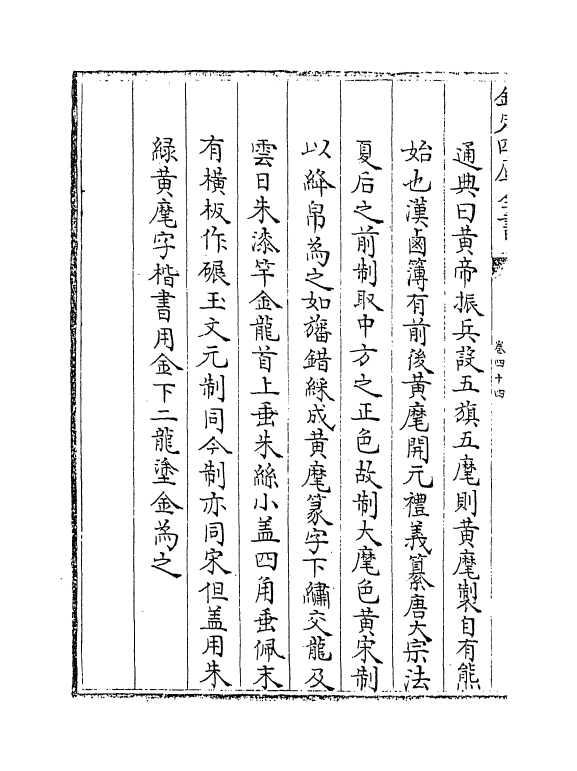 欽定四庫全書
卷四十四
通典曰黄帝振兵設五旗五麾則黄麾製自有熊
始也漢鹵簿有前後黄麾開元禮義纂唐太宗法
夏后之前制取中方之正色故制大麾色黄宋制
以絳帛為之如旛錯綵成黄麾篆字下繡交龍及
雲日朱漆竿金龍首上垂朱絲小盖四角垂佩末
有横板作碾玉文元制同今制亦同宋但盖用朱
緑黄麾字楷書用金下二龍塗金為之